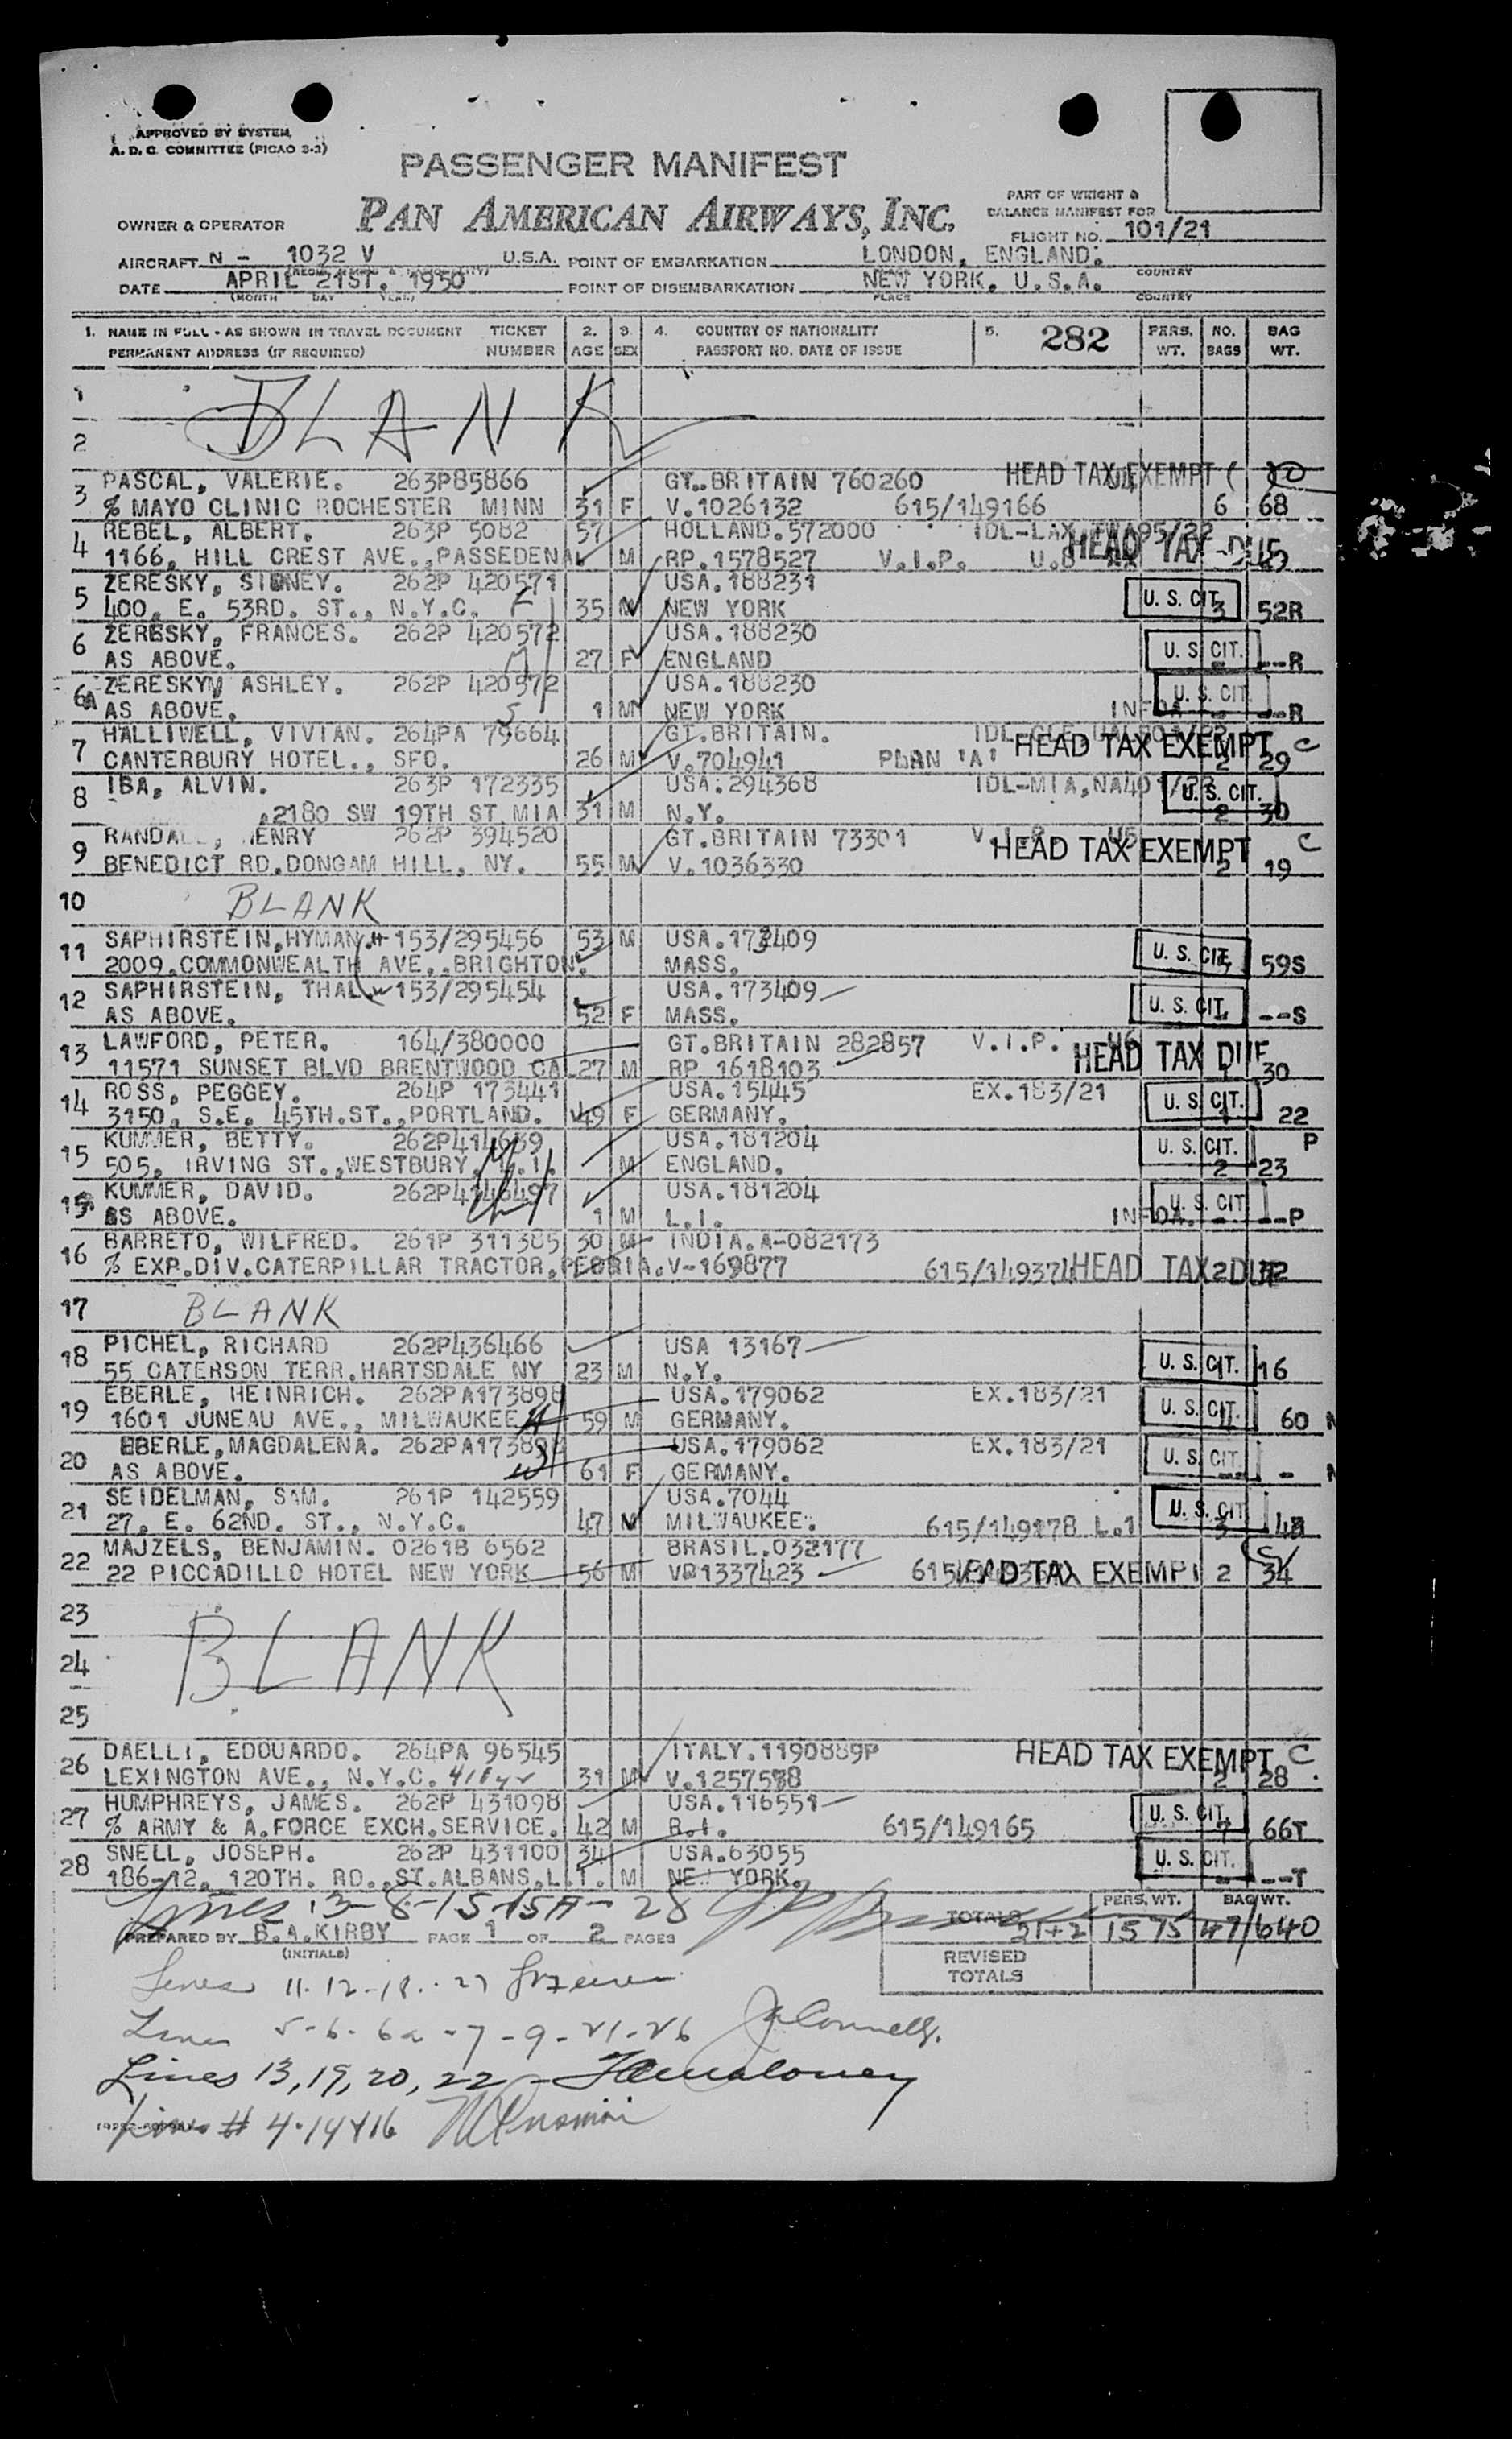 APPROVED BY SYSTEM
A. D. C. COMMITTEE (PICAO 3-2)
PASSENGER MANIFEST
OWNER & OPERATOR PAN AMERICAN AIRWAYS, INC.
PART OF WEIGHT &
BALANCE MANIFEST FOR
FLIGHT NO. 101/21
AIRCRAFT N - 1032 V U.S.A. POINT OF EMBARKATION LONDON, ENGLAND.
COUNTRY
DATE APRIL 21ST. 1950 POINT OF DISEMBARKATION NEW YORK. U.S.A.
(MONTH DAY YEAR) PLACE COUNTRY
1. NAME IN FULL - AS SHOWN IN TRAVEL DOCUMENT TICKET 2. 3. 4. COUNTRY OF NATIONALITY 5. 282 PERS. NO. BAG
PERMANENT ADDRESS (IF REQUIRED) NUMBER AGE SEX PASSPORT NO. DATE OF ISSUE WT. BAGS WT.
1
BLANK
2
3 PASCAL, VALERIE. 263P85866 GT.BRITAIN 760260 HEAD TAX EXEMPT
% MAYO CLINIC ROCHESTER MINN 31 F V.1026132 615/149166 6 68
4 REBEL, ALBERT. 263P 5082 57 HOLLAND.572000 IDL-LAX
1166, HILL CREST AVE.,PASSEDENA M RP.1578527 V.I.P. HEAD TAX DUE
5 ZERESKY, SIDNEY. 262P 420571 USA.188231
400, E. 53RD. ST., N.Y.C. 35 M NEW YORK U. S. CIT. 3 52R
6 ZERESKY, FRANCES. 262P 420572 USA.188230
AS ABOVE. 27 F ENGLAND U. S. CIT. --R
6A ZERESKY, ASHLEY. 262P 420572 USA.188230
AS ABOVE. 1 M NEW YORK U. S. CIT. --R
7 HALLIWELL, VIVIAN. 264PA 79664 GT.BRITAIN.
CANTERBURY HOTEL., SFO. 26 M V.704941 PLAN 'A' HEAD TAX EXEMPT C 2 29
8 IBA, ALVIN. 263P 172335 USA.294368 IDL-MIA,NA401/22
,2180 SW 19TH ST.MIA 31 M N.Y. U. S. CIT. 2 30
9 HENRY 262P 394520 GT.BRITAIN 73301
BENEDICT RD.DONGAM HILL, NY. 55 M V.1036330 HEAD TAX EXEMPT C 2 19
10 BLANK
11 SAPHIRSTEIN,HYMAN. 153/295456 53 M USA.173409
2009.COMMONWEALTH AVE.,BRIGHTON. MASS. U. S. CIT. 59S
12 SAPHIRSTEIN, THAL 153/295454 USA.173409
AS ABOVE. 52 F MASS. U. S. CIT. --S
13 LAWFORD, PETER. 164/380000 GT.BRITAIN 282857 V.I.P. U6
11571 SUNSET BLVD BRENTWOOD CAL 27 M RP 1618103 HEAD TAX DUE 1 30
14 ROSS, PEGGEY. 264P 173441 USA.15445 EX.183/21
3150, S.E. 45TH.ST.,PORTLAND. 49 F GERMANY. U. S. CIT. 1 22
15 KUMMER, BETTY. USA.181204 U. S. CIT. P
505, IRVING ST.,WESTBURY, L.I. M ENGLAND. 2 23
15A KUMMER, DAVID. USA.181204 U. S. CIT.
AS ABOVE. 1 M L.I. --P
16 BARRETO, WILFRED. 261P 311385 30 M INDIA.A-082173
% EXP.DIV.CATERPILLAR TRACTOR,PEORIA.V-169877 615/149374 HEAD TAX DUE 2 32
17 BLANK
18 PICHEL, RICHARD 262P436466 USA 13167
55 CATERSON TERR.HARTSDALE NY 23 M N.Y. U. S. CIT. 1 16
19 EBERLE, HEINRICH. 262PA173898 USA.179062 EX.183/21
1601 JUNEAU AVE., MILWAUKEE 59 M GERMANY. U. S. CIT. 60
20 EBERLE,MAGDALENA. 262PA17389 USA.179062 EX.183/21
AS ABOVE. 61 F GERMANY. U. S. CIT. -
21 SEIDELMAN, SAM. 261P 142559 USA.7044
27, E. 62ND. ST., N.Y.C. 47 M MILWAUKEE. 615/149178 L.1 U. S. CIT 3
22 MAJZELS, BENJAMIN. 0261B 6562 BRASIL.032177
22 PICCADILLO HOTEL NEW YORK 56 M VP1337423 HEAD TAX EXEMPT 2 34
23
24 BLANK
25
26 DAELLI, EDOUARDO. 264PA 96545 ITALY.1190889P
LEXINGTON AVE., N.Y.C. 31 M V.1257538 HEAD TAX EXEMPT C 2 28
27 HUMPHREYS, JAMES. 262P 431098 USA.116551
% ARMY & A.FORCE EXCH.SERVICE. 42 M R.I. 615/149165 U. S. CIT. 7 66T
28 SNELL, JOSEPH. 262P 431100 34 USA.63055
186-12, 120TH. RD.,ST.ALBANS,L.I. M NEW YORK. U. S. CIT. --T
Lines 3-8-15-15A-28
PERS. WT. BAG WT.
PREPARED BY B.A.KIRBY PAGE 1 OF 2 PAGES TOTALS 21+2 1575 47/640
(INITIALS)
REVISED
TOTALS
Lines 11-12-18-27
Lines 5-6-6a-7-9-21-26
Lines 13, 19, 20, 22 -
Lines # 4-14 & 16